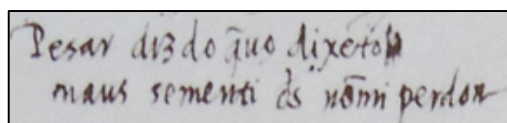 Pesar diz do q̃uo dixeto
maus sementi d̃s nõmi perdon